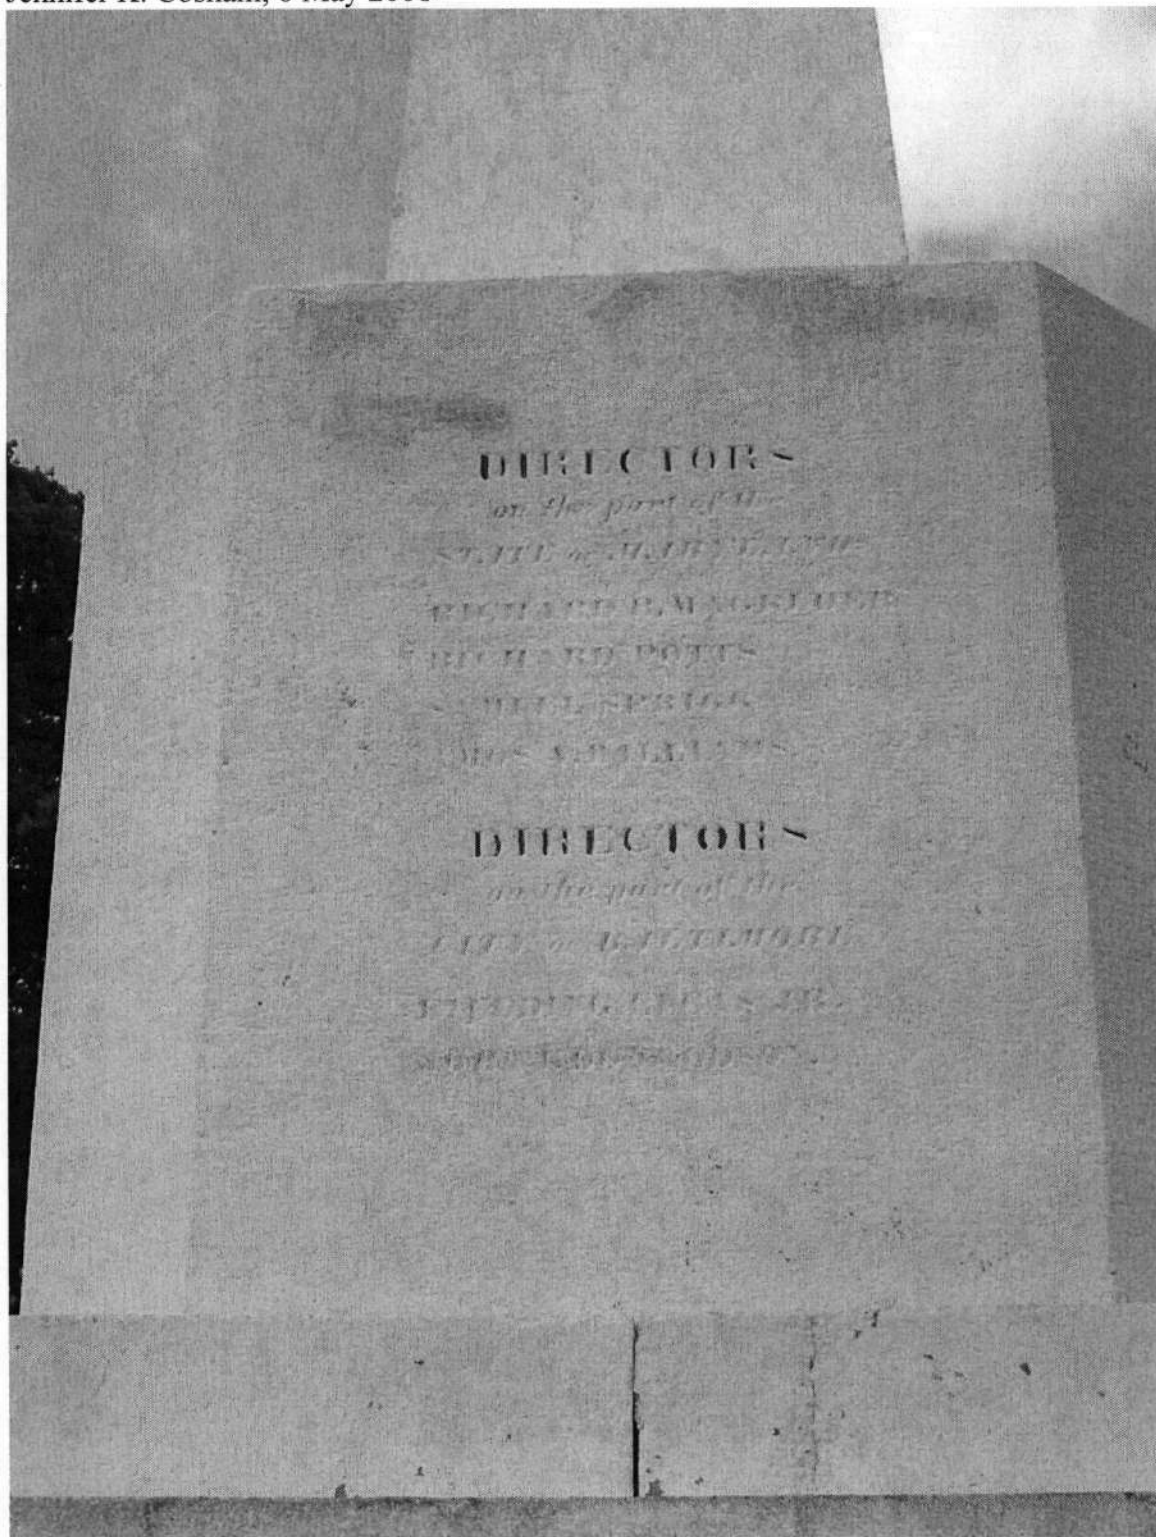 DIRECTORS
on the part of the
STATE OF MARYLAND
RICHARD B. MAGRUDER
RICHARD POTTS
SPRIGG
WILLIAMS
DIRECTORS
on the part of the
CITY OF BALTIMORE
FIELDING LUCAS JR.